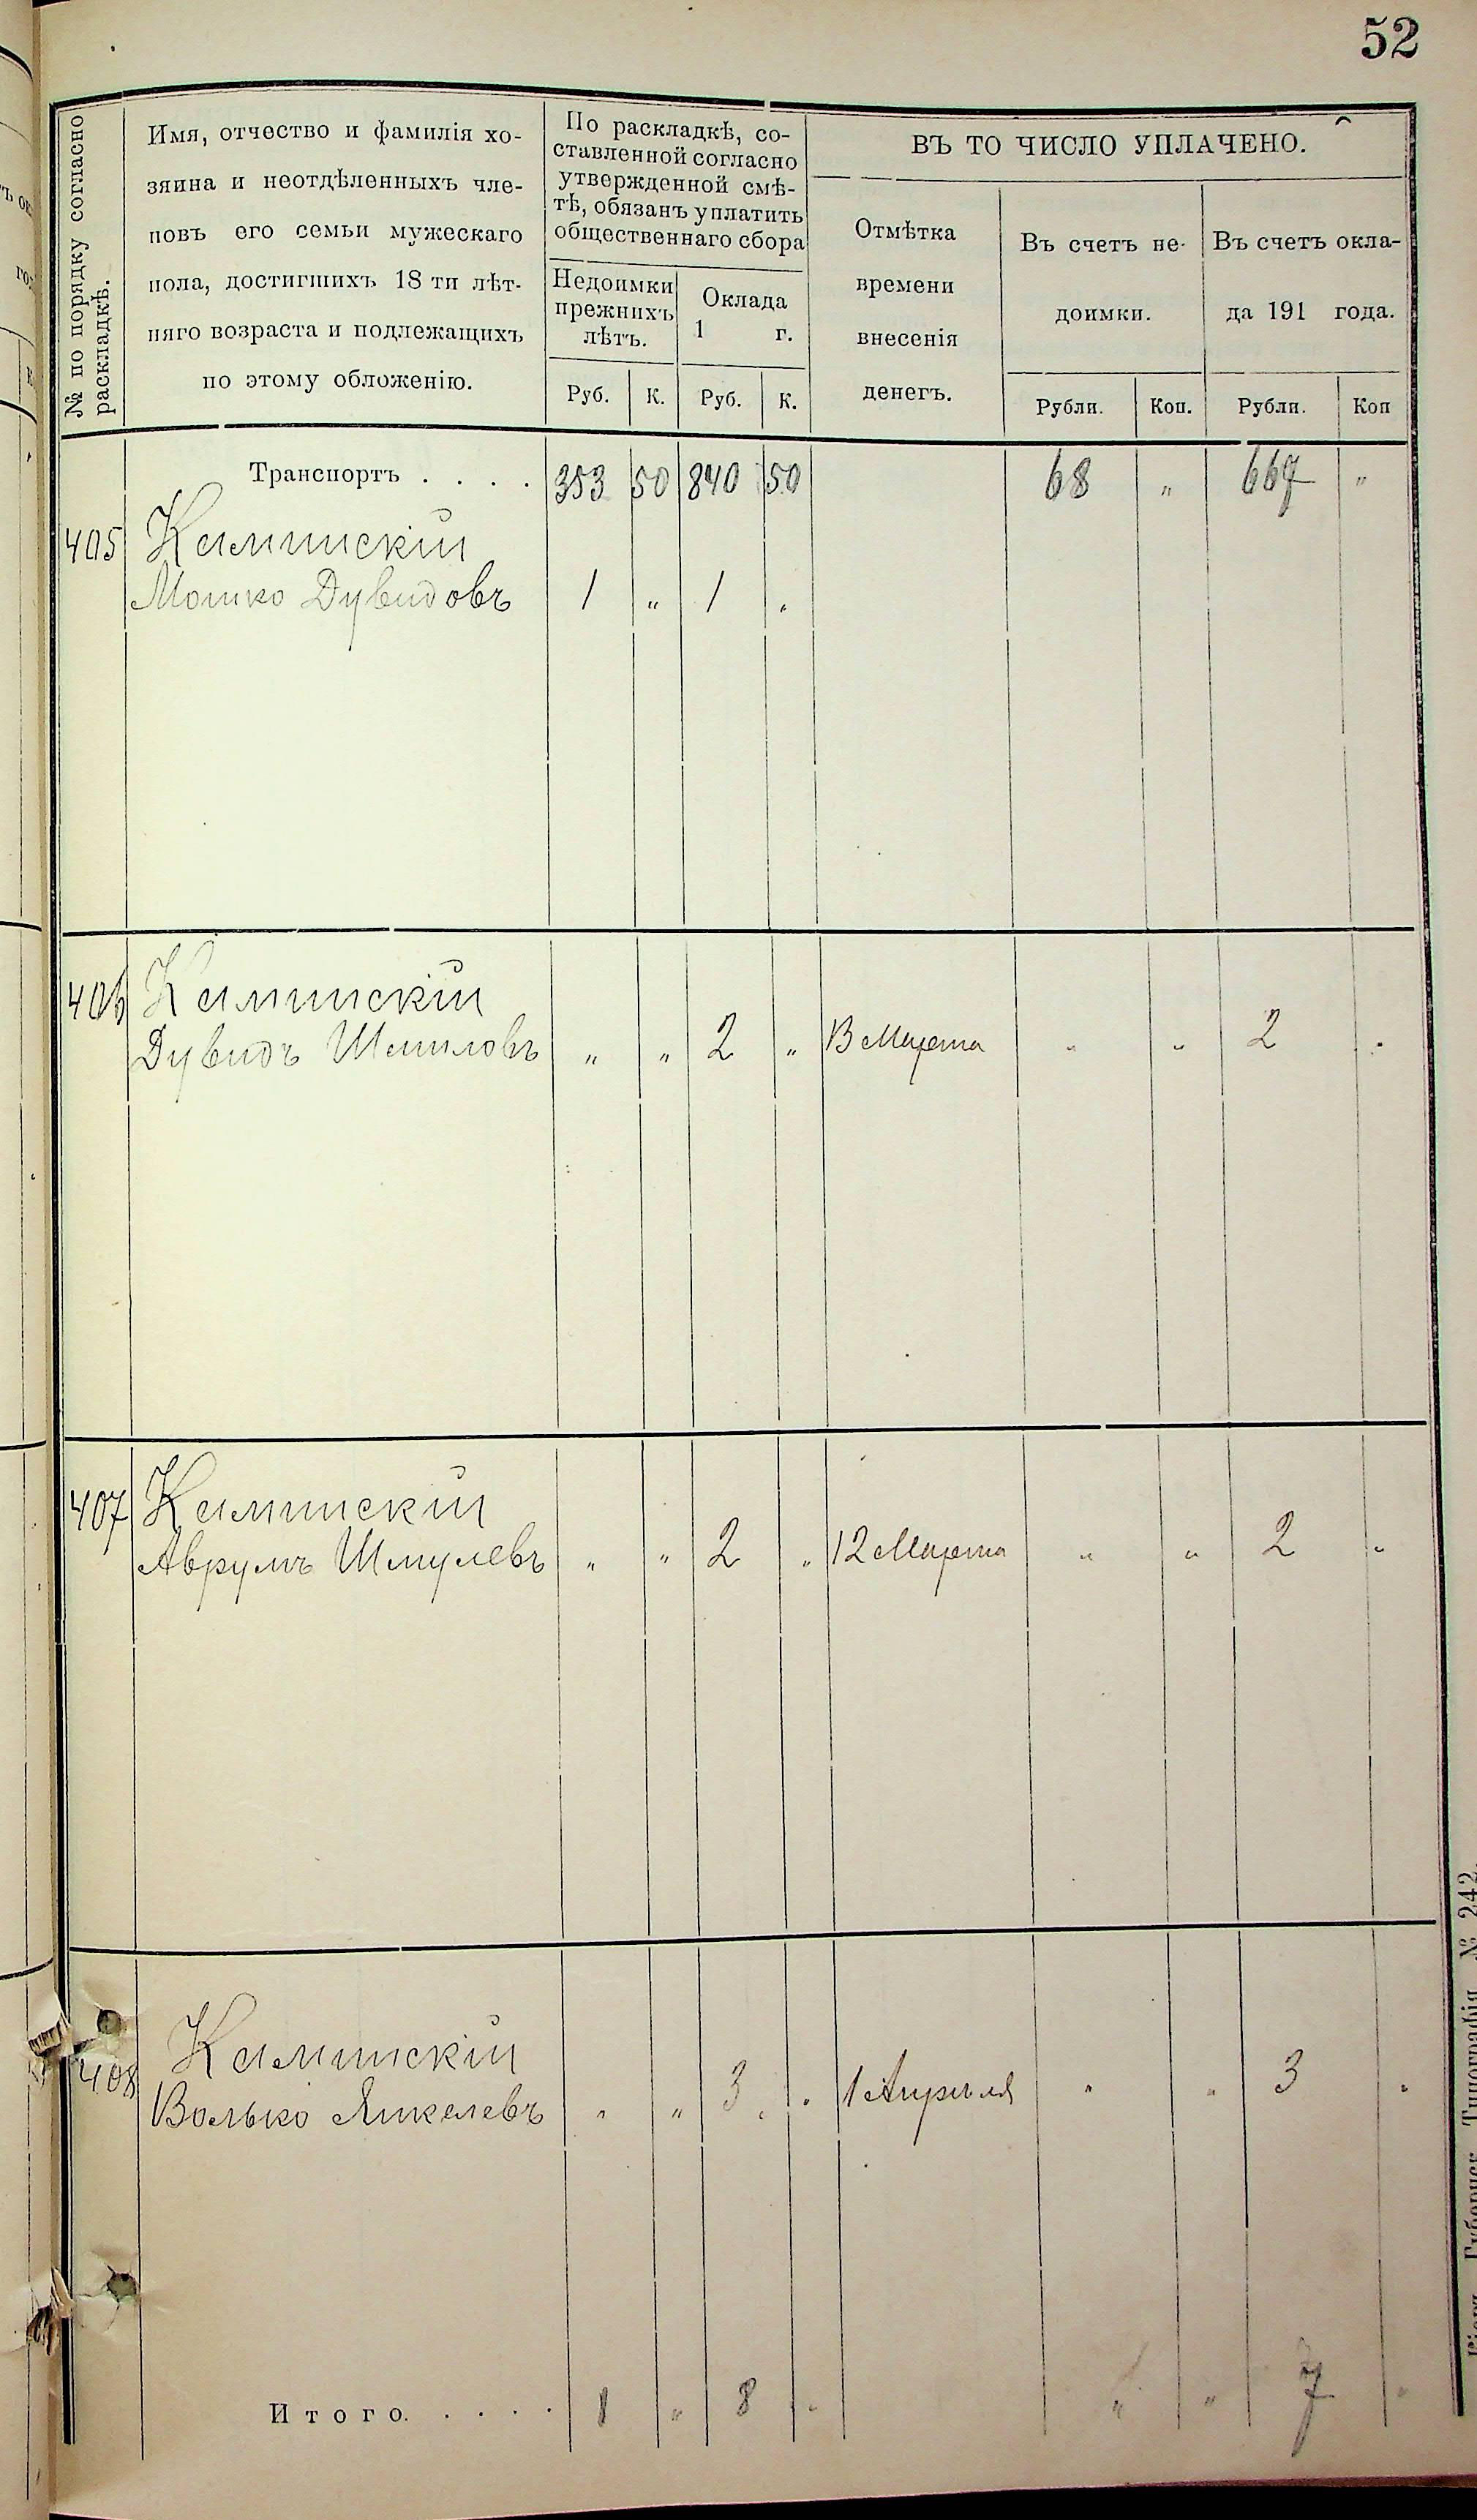 52
№ по порядку согласно
раскладкѣ.
Имя, отчество и фамилія хо-
зяина и неотдѣленныхъ чле-
новъ его семьи мужескаго
пола, достигшихъ 18 ти лѣт-
няго возраста и подлежащихъ
по этому обложенію.
По раскладкѣ, со-
ставленной согласно
утвержденной смѣ-
тѣ, обязанъ уплатить
общественнаго сбора
Недоимки
прежнихъ
лѣтъ.
Оклада
1 г.
Руб. К. Руб. К.
ВЪ ТО ЧИСЛО УПЛАЧЕНО.
Отмѣтка
времени
внесенія
денегъ.
Въ счетъ не-
доимки.
Въ счетъ окла-
да 191 года.
Рубли. Коп. Рубли. Коп
Транспортъ . . . . 353 50 840 50 68 " 667 "
405 Каминскій
Мошко Дувидовъ 1 " 1 "
406 Каминскій
Дувидъ Шмиловъ " " 2 " 13 Марта " " 2 "
407 Каминскій
Аврумъ Шмулевъ " " 2 " 12 Марта " " 2 "
408 Каминскій
Волько Янкелевъ " " 3 " 1 Апреля " " 3 "
Итого. . . . . 1 " 8 " " " 7 "
Губернск. Типографія № 242.